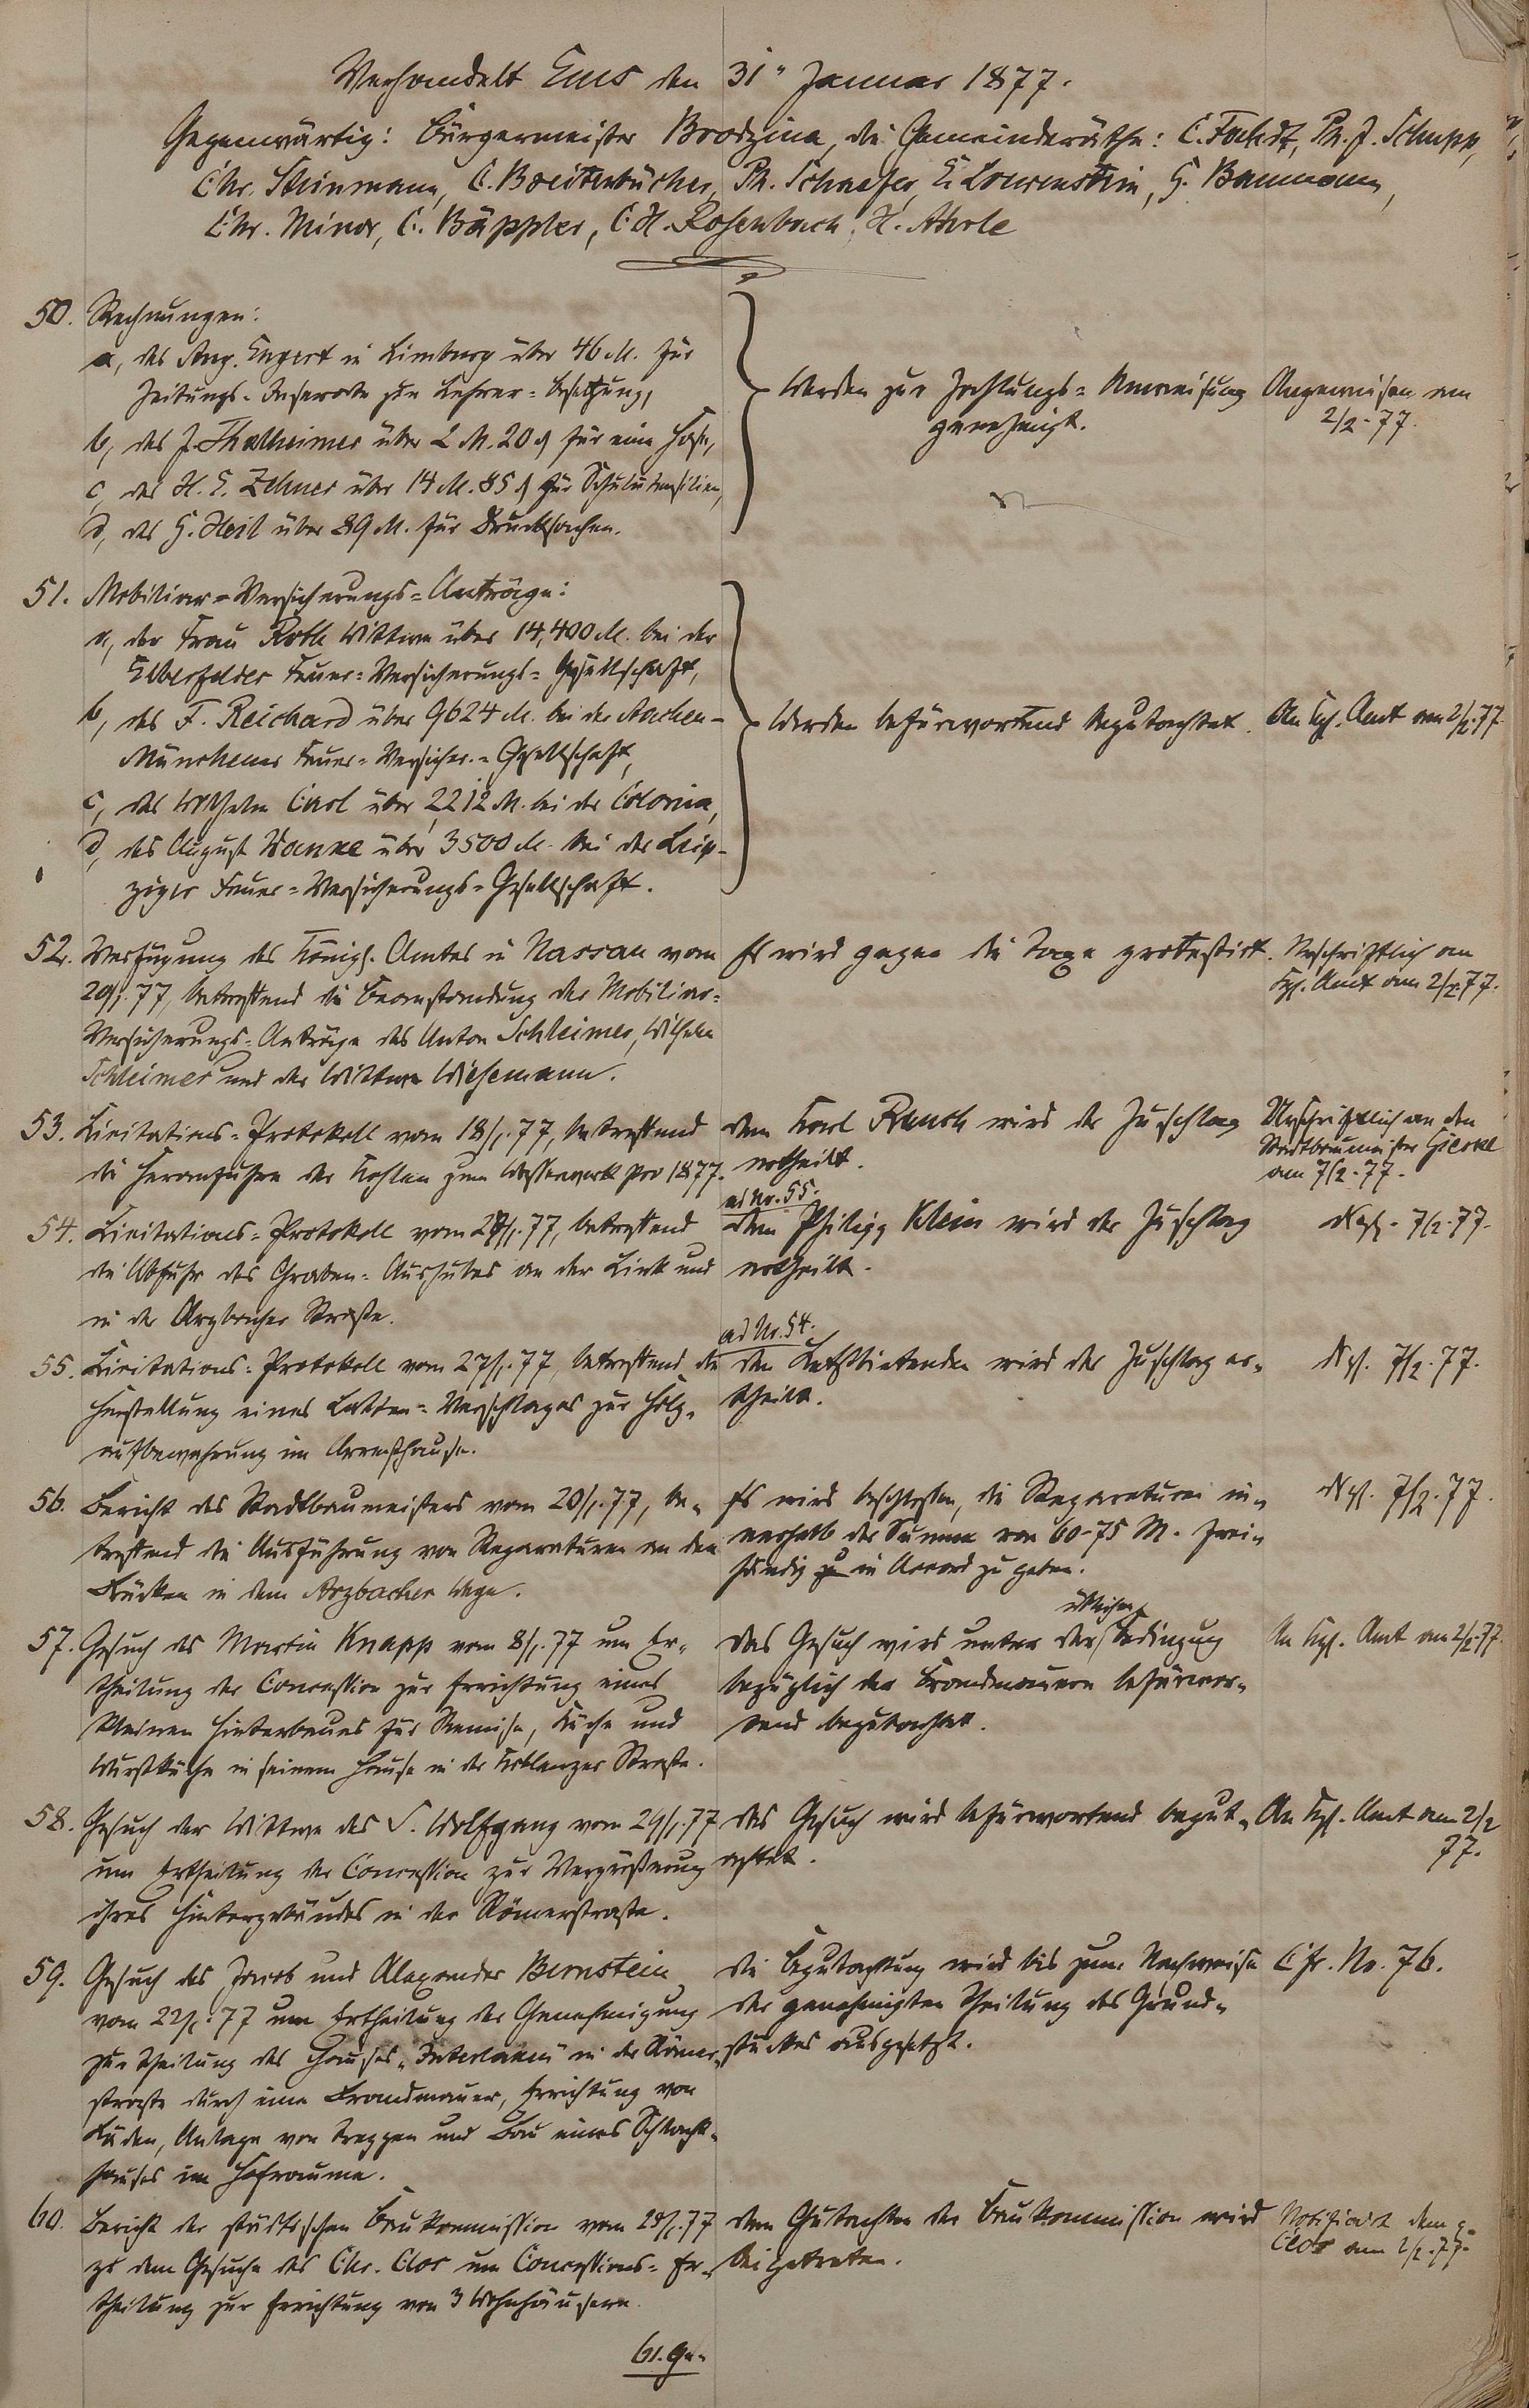 Verhandelt Ems den 31" Januar 1877.
Gegenwärtig: Bürgermeister Brodzina, die Gemeinderäthe: C. Fachdt, Ph. J. Schupp,
Chr. Steinmann, C. Breitenbücher, Ph. Schaefer, E. Löwenstein, G. Baumann,
Chr. Minor, C. Bäppler, C. H. Rosenbach, H.
50. Rechnungen:
a, des Aug. Engert in Limburg über 46 M. für
Zeitungs-Inserate zur Lehrer-Besetzung,
b, des J. Thalheimer über 2 M. 20 ₰ für eine
c, des H. E. Zehner über 14 M. 85 ₰ für Schulutensilien,
d, des G. Heil über 89 M. für Drucksachen.
Werden zur Zahlungs-Anweisung
genehmigt.
Angewiesen am
2/2.77.
51. Mobiliar-Versicherungs-Anträge:
a, der Frau Roth Wittwe über 14,400 M. bei der
Elberfelder Feuer-Versicherungs-Gesellschaft,
b, des F. Reichard über 9624 M. bei der Aachen-
Münchener Feuer-Versicher.-Gesellschaft,
c, des Wilhelm Carl über 2212 M. bei der Colonia,
d, des August Wanke über 3500 M. bei der Leip-
ziger Feuer-Versicherungs-Gesellschaft.
Werden befürwortend begutachtet.
An Kgl. Amt am 2/2.77.
52. Verfügung des Königl. Amtes in Nassau vom
29/1.77, betreffend die Beanstandung der Mobiliar-
Versicherungs-Anträge des Anton Schleimer, Wilhelm
Schleimer und der Wittwe Wiesemann.
Es wird gegen die Taxe protestirt.
Urschriftlich an
Kgl. Amt am 2/2.77.
53. Licitations-Protokoll vom 18/1.77, betreffend
die Heranfuhr der Kohlen zum Wasserwerk pro 1877.
Dem Karl Rausch wird der Zuschlag
ertheilt.
Urschriftlich an den
Stadtbaumeister Gierke
am 7/2.77.
54. Licitations-Protokoll vom 27/1.77, betreffend
die Abfuhr des Graben-Aushubes an der Link und
in der Arzbacher Straße.
ad No. 55.
Dem Philipp Klein wird der Zuschlag
ertheilt.
Desgl. 7/2.77.
55. Licitations-Protokoll vom 27/1.77, betreffend die
Herstellung eines Latten-Verschlages zur Holz-
aufbewahrung im Arresthause.
ad No. 54.
Den Letztbietenden wird der Zuschlag er-
theilt.
Dsgl. 7/2.77.
56. Bericht des Stadtbaumeisters vom 20/1.77, be-
treffend die Ausführung von Reparaturen an den
Brücken in dem Arzbacher Wege.
Es wird beschlossen, die Reparaturen in-
nerhalb der Summe von 60-75 M. frei-
händig zu in Accord zu geben.
Dsgl. 7/2.77.
57. Gesuch des Martin Knapp vom 8/1.77 um Er-
theilung der Concession zur Errichtung eines
kleinen Hinterbaues für Remise, Küche und
Wurstküche in seinem Hause in der Koblenzer Straße.
üblichen
Das Gesuch wird unter der Bedingung
bezüglich der Brandmauern befürwor-
tend begutachtet.
An Kgl. Amt am 2/2.77.
58. Gesuch der Wittwe des S. Wolfgang vom 29/1.77
um Ertheilung der Concession zur Vergrößerung
ihres Hintergebäudes in der Römerstraße.
Das Gesuch wird befürwortend begut-
achtet.
An Kgl. Amt am 2/2
77.
59. Gesuch des Jacob und Alexander Bernstein
vom 22/1.77 um Ertheilung der Genehmigung
zur Theilung des Hauses „Interlaken" in der Römer-
straße durch eine Brandmauer, Errichtung von
Läden, Anlage von Treppen und Bau eines Schlacht-
hauses im Hofraume.
Die Begutachtung wird bis zum Nachweise
der genehmigten Theilung des Grund-
stückes ausgesetzt.
Cfr. No. 76.
60. Bericht der städtischen Baukommission vom 28/1.77
zu dem Gesuche des Chr. Clos um Concessions-Er-
theilung zur Errichtung von 3 Wohnhäusern.
Dem Gutachten der Baukommission wird
beigetreten.
Notificirt dem p.
Clos am 2/2.77.
61. Ge-